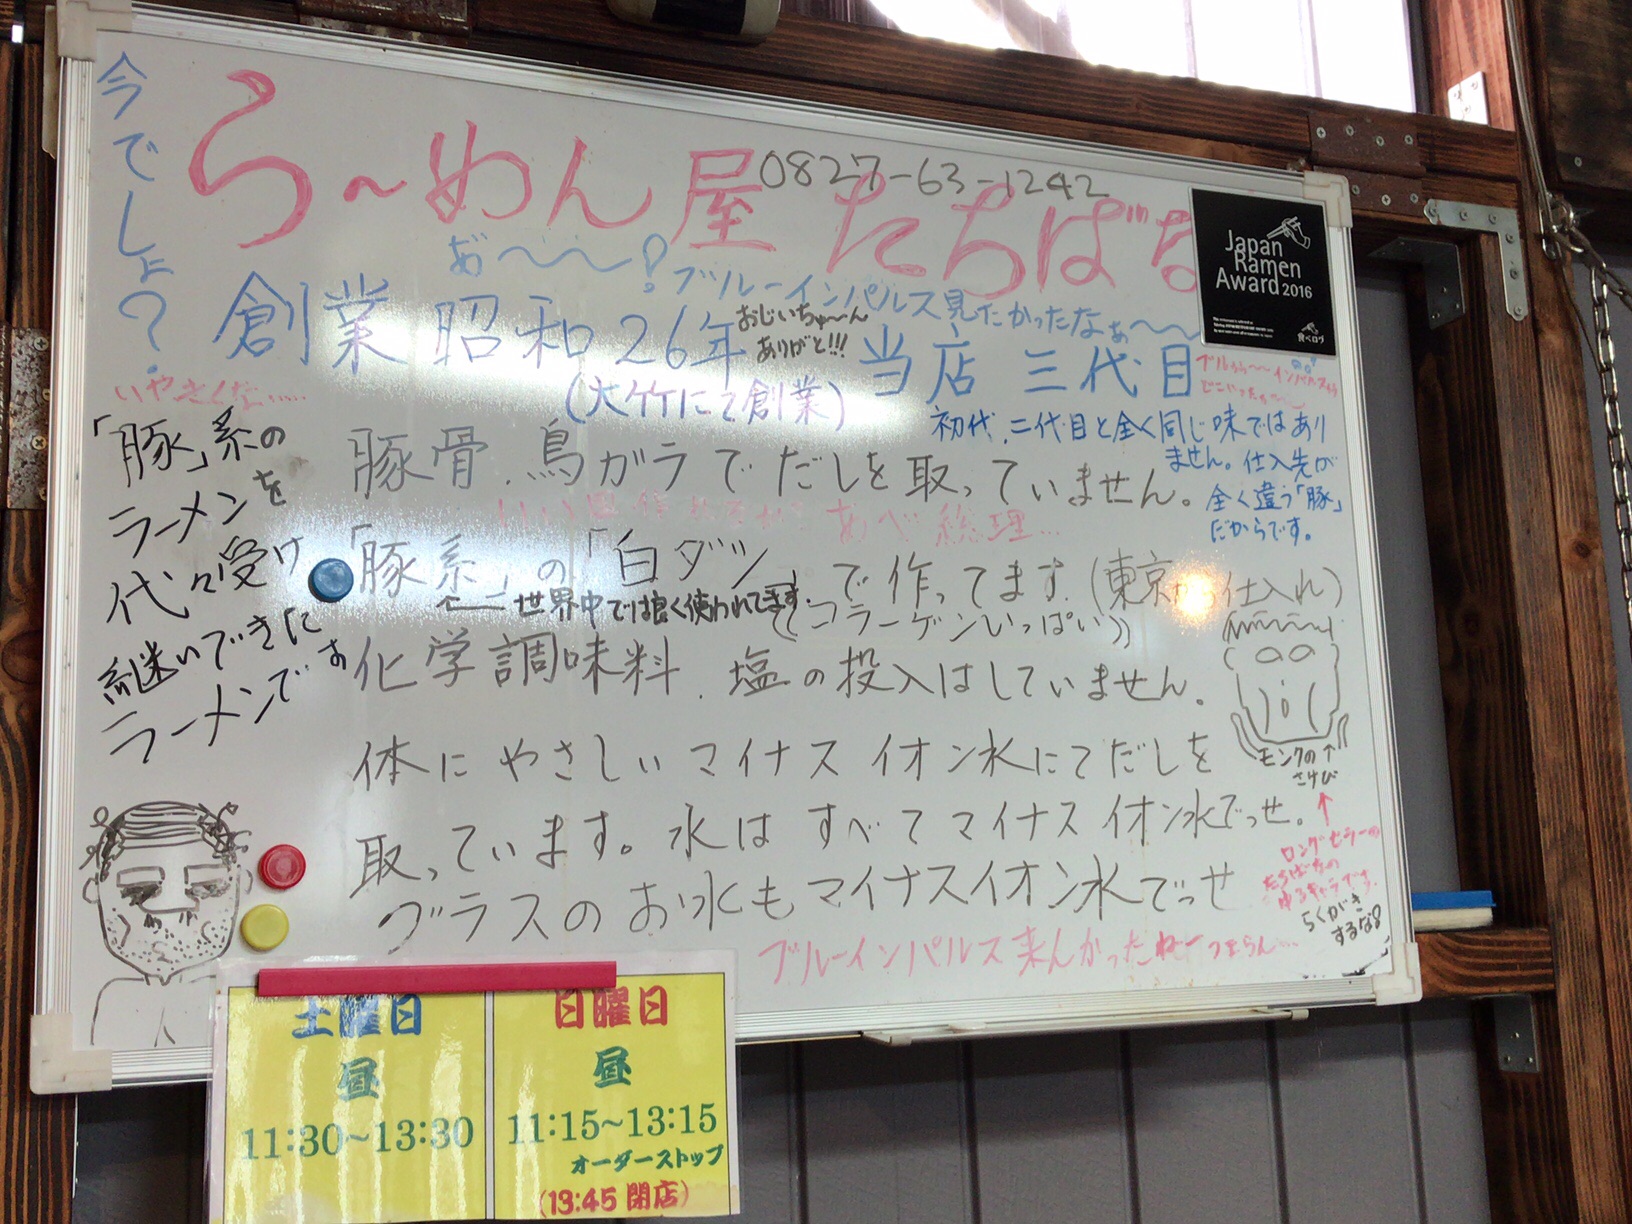 今でしょ?
らーめん屋 たちばな
0827-63-1242
お〜〜〜!
ブルーインパルス見たかったなぁ〜〜
創業 昭和26年 当店 三代目
おじいちゃ〜ん
ありがと!!!
(大竹にて創業)
Japan
Ramen
Award 2016
食べログ
いやさくだ.....
「豚」系の
ラーメンを
代々受け
継いできた
ラーメンです
初代、二代目と全く同じ味ではあり
ません。仕入先が
全く違う「豚」
だからです。
豚骨、鳥ガラでだしを取っていません。
あべ総理...
「豚系」の「白ダシ」で作ってます.(東京から仕入れ)
世界中では良く使われてます.
((コラーゲンいっぱい))
化学調味料、塩の投入はしていません。
体にやさしいマイナスイオン水にてだしを
取っています。水はすべてマイナスイオン水でっせ。
グラスのお水もマイナスイオン水でっせ
ムンクの↑
さけび
↑
ロングセラーの
たちばなの
ゆるキャラです。
らくがき
するな!
ブルーインパルス来んかったねー
土曜日
昼
11:30~13:30
日曜日
昼
11:15~13:15
オーダーストップ
(13:45 閉店)